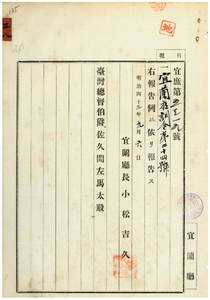 宜庶第三七一九號
一宜蘭廳訓令第十四號
右報告例ニ依リ報告ス
明治四十二年九月六日
宜蘭廳長小松吉久
臺灣總督伯爵佐久間左馬太殿
宜蘭廳